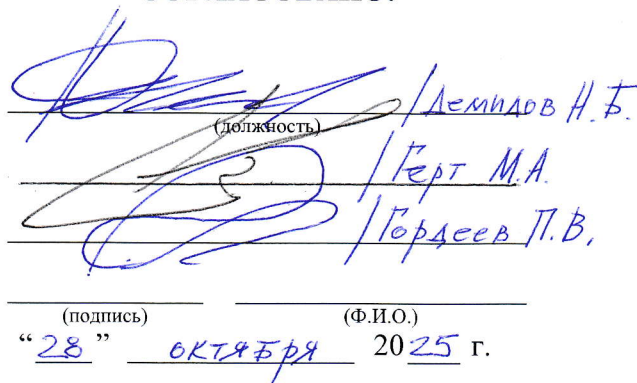 /Демидов Н.Б.
(должность)
/Герт М.А.
/Гордеев П.В.
(подпись) (Ф.И.О.)
“28” октября 2025 г.